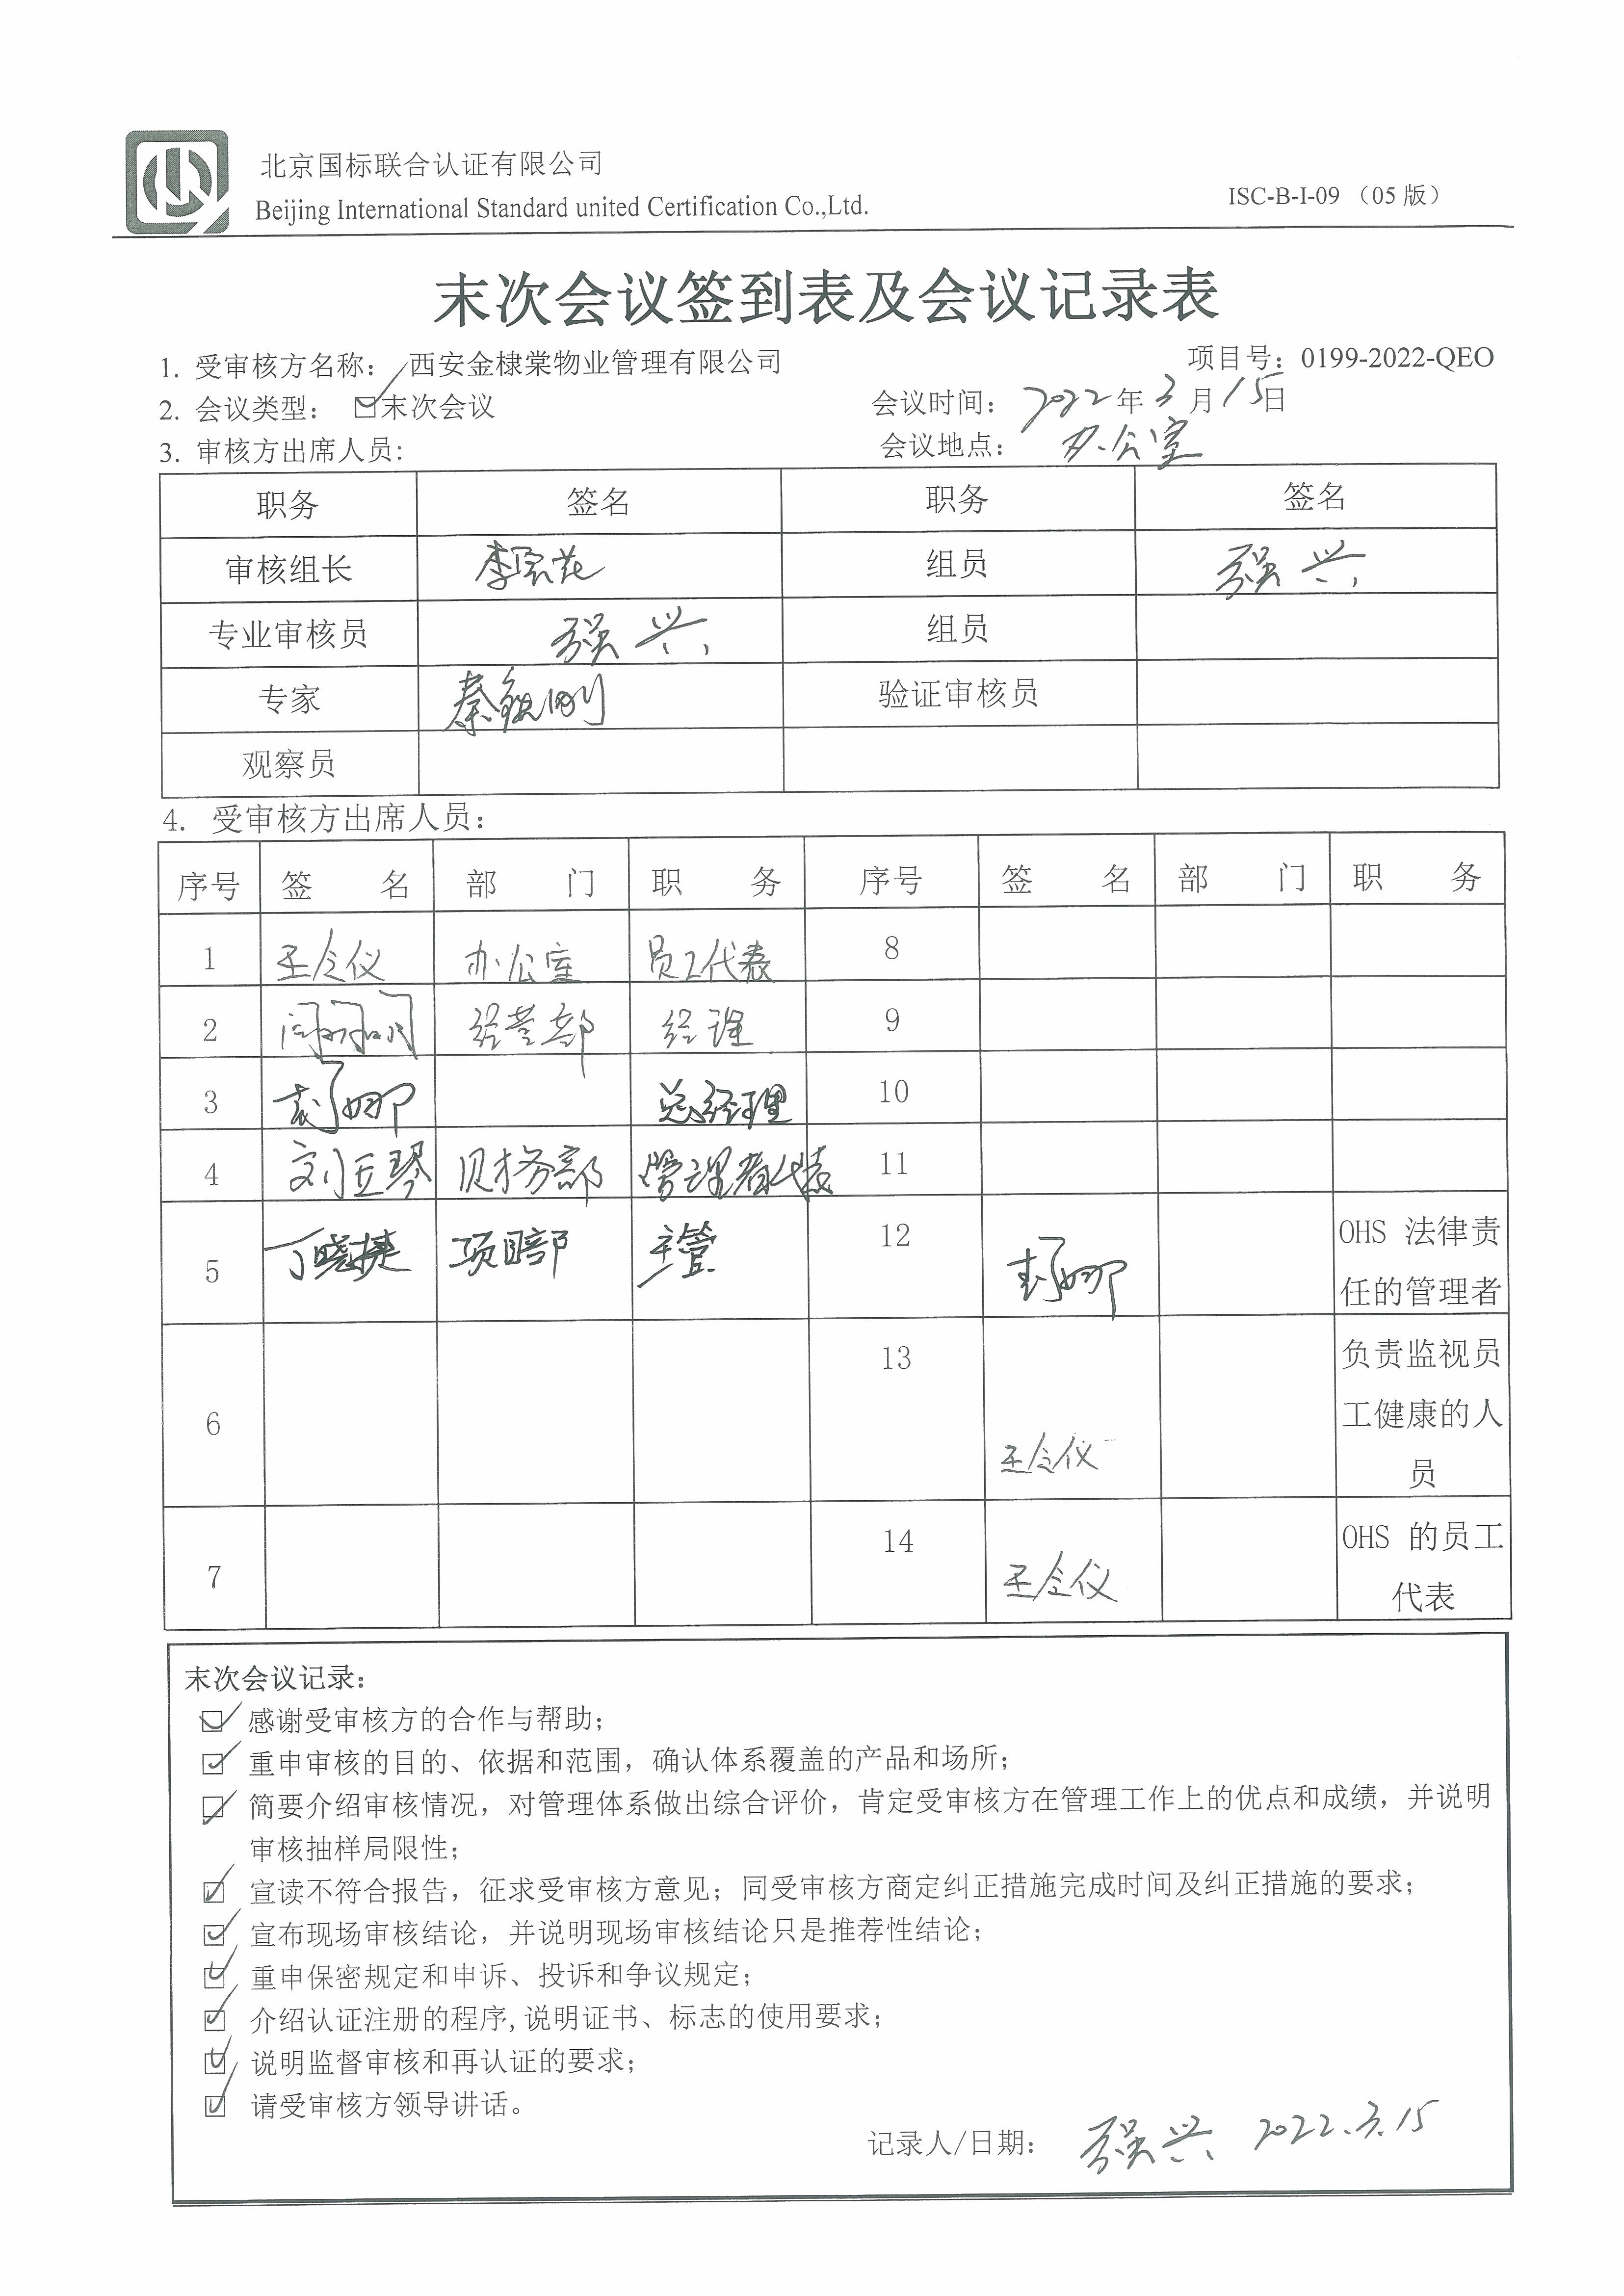 北京国标联合认证有限公司
Beijing International Standard united Certification Co.,Ltd.
ISC-B-I-09 （05 版）
末次会议签到表及会议记录表
1. 受审核方名称： 西安金棣棠物业管理有限公司 项目号：0199-2022-QEO
2. 会议类型： ☑末次会议 会议时间： 2022 年 3 月 15 日
3. 审核方出席人员: 会议地点： 办公室
职务 签名 职务 签名
审核组长 组员 强兴
专业审核员 强兴 组员
专家 秦毅刚 验证审核员
观察员
4. 受审核方出席人员：
序号 签 名 部 门 职 务 序号 签 名 部 门 职 务
1 王令仪 办公室 员工代表 8
2 经营部 经理 9
3 总经理 10
4 刘亚琴 财务部 管理者代表 11
5 丁晓捷 项目部 主管 12 OHS 法律责
任的管理者
6 13 王令仪 负责监视员
工健康的人
员
7 14 王令仪 OHS 的员工
代表
末次会议记录：
☑ 感谢受审核方的合作与帮助；
☑ 重申审核的目的、依据和范围，确认体系覆盖的产品和场所；
☑ 简要介绍审核情况，对管理体系做出综合评价，肯定受审核方在管理工作上的优点和成绩，并说明
审核抽样局限性；
☑ 宣读不符合报告，征求受审核方意见；同受审核方商定纠正措施完成时间及纠正措施的要求；
☑ 宣布现场审核结论，并说明现场审核结论只是推荐性结论；
☑ 重申保密规定和申诉、投诉和争议规定；
☑ 介绍认证注册的程序,说明证书、标志的使用要求；
☑ 说明监督审核和再认证的要求；
☑ 请受审核方领导讲话。
记录人/日期： 强兴 2022.3.15